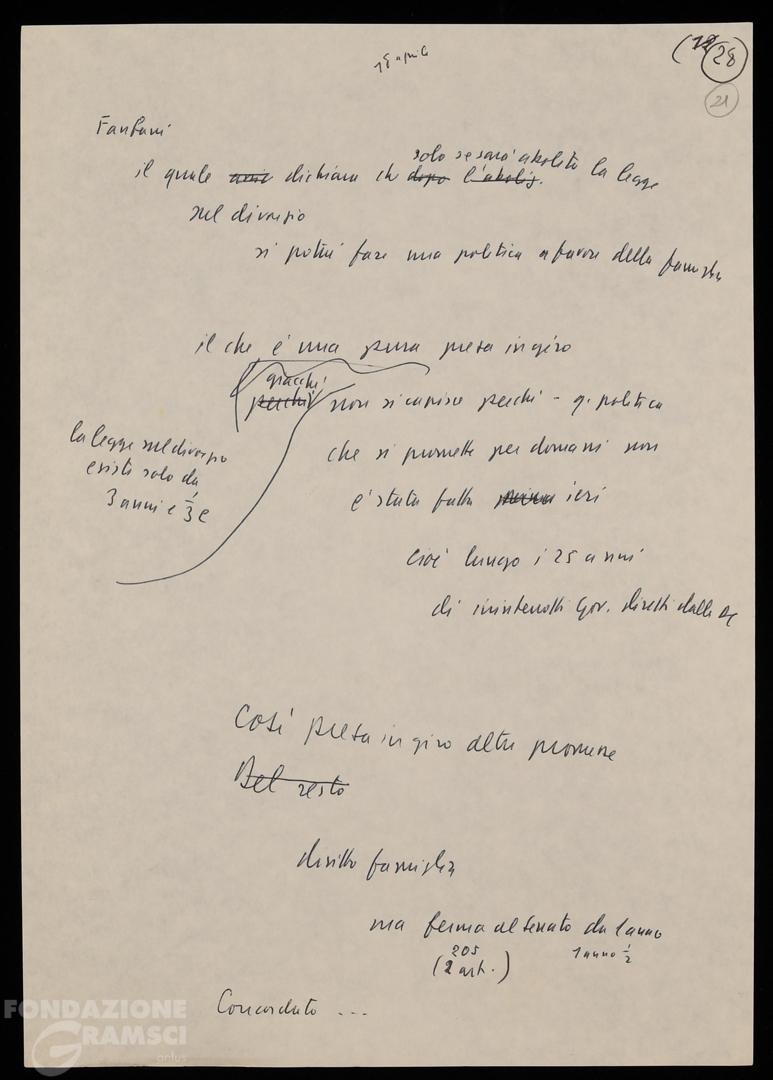 18 aprile
(12 28
21
Fanfani
solo se sarà abolita la legge
il quale anzi dichiara che dopo l'aboliz.
sul divorzio
si potrà fare una politica a favore della famiglia
il che è una pura presa in giro
giacché
perché non si capisce perché - q. politica
la legge sul divorzio
esiste solo da
3 anni e 1/3 e
che si promette per domani non
è stata fatta prima ieri
cioè lungo i 25 anni
di ininterrotti Gov. diretti dalla DC
Così presa in giro altre promesse
Del resto
diritto famiglia
ma ferma al Senato da 1 anno
205
1 anno 1/2
(2 art.)
Concordato ...
FONDAZIONE
GRAMSCI